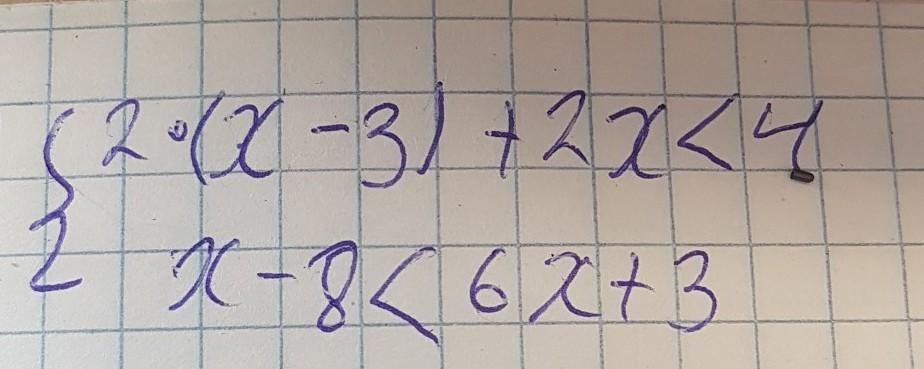 2·(x-3)+2x<4
x-8<6x+3